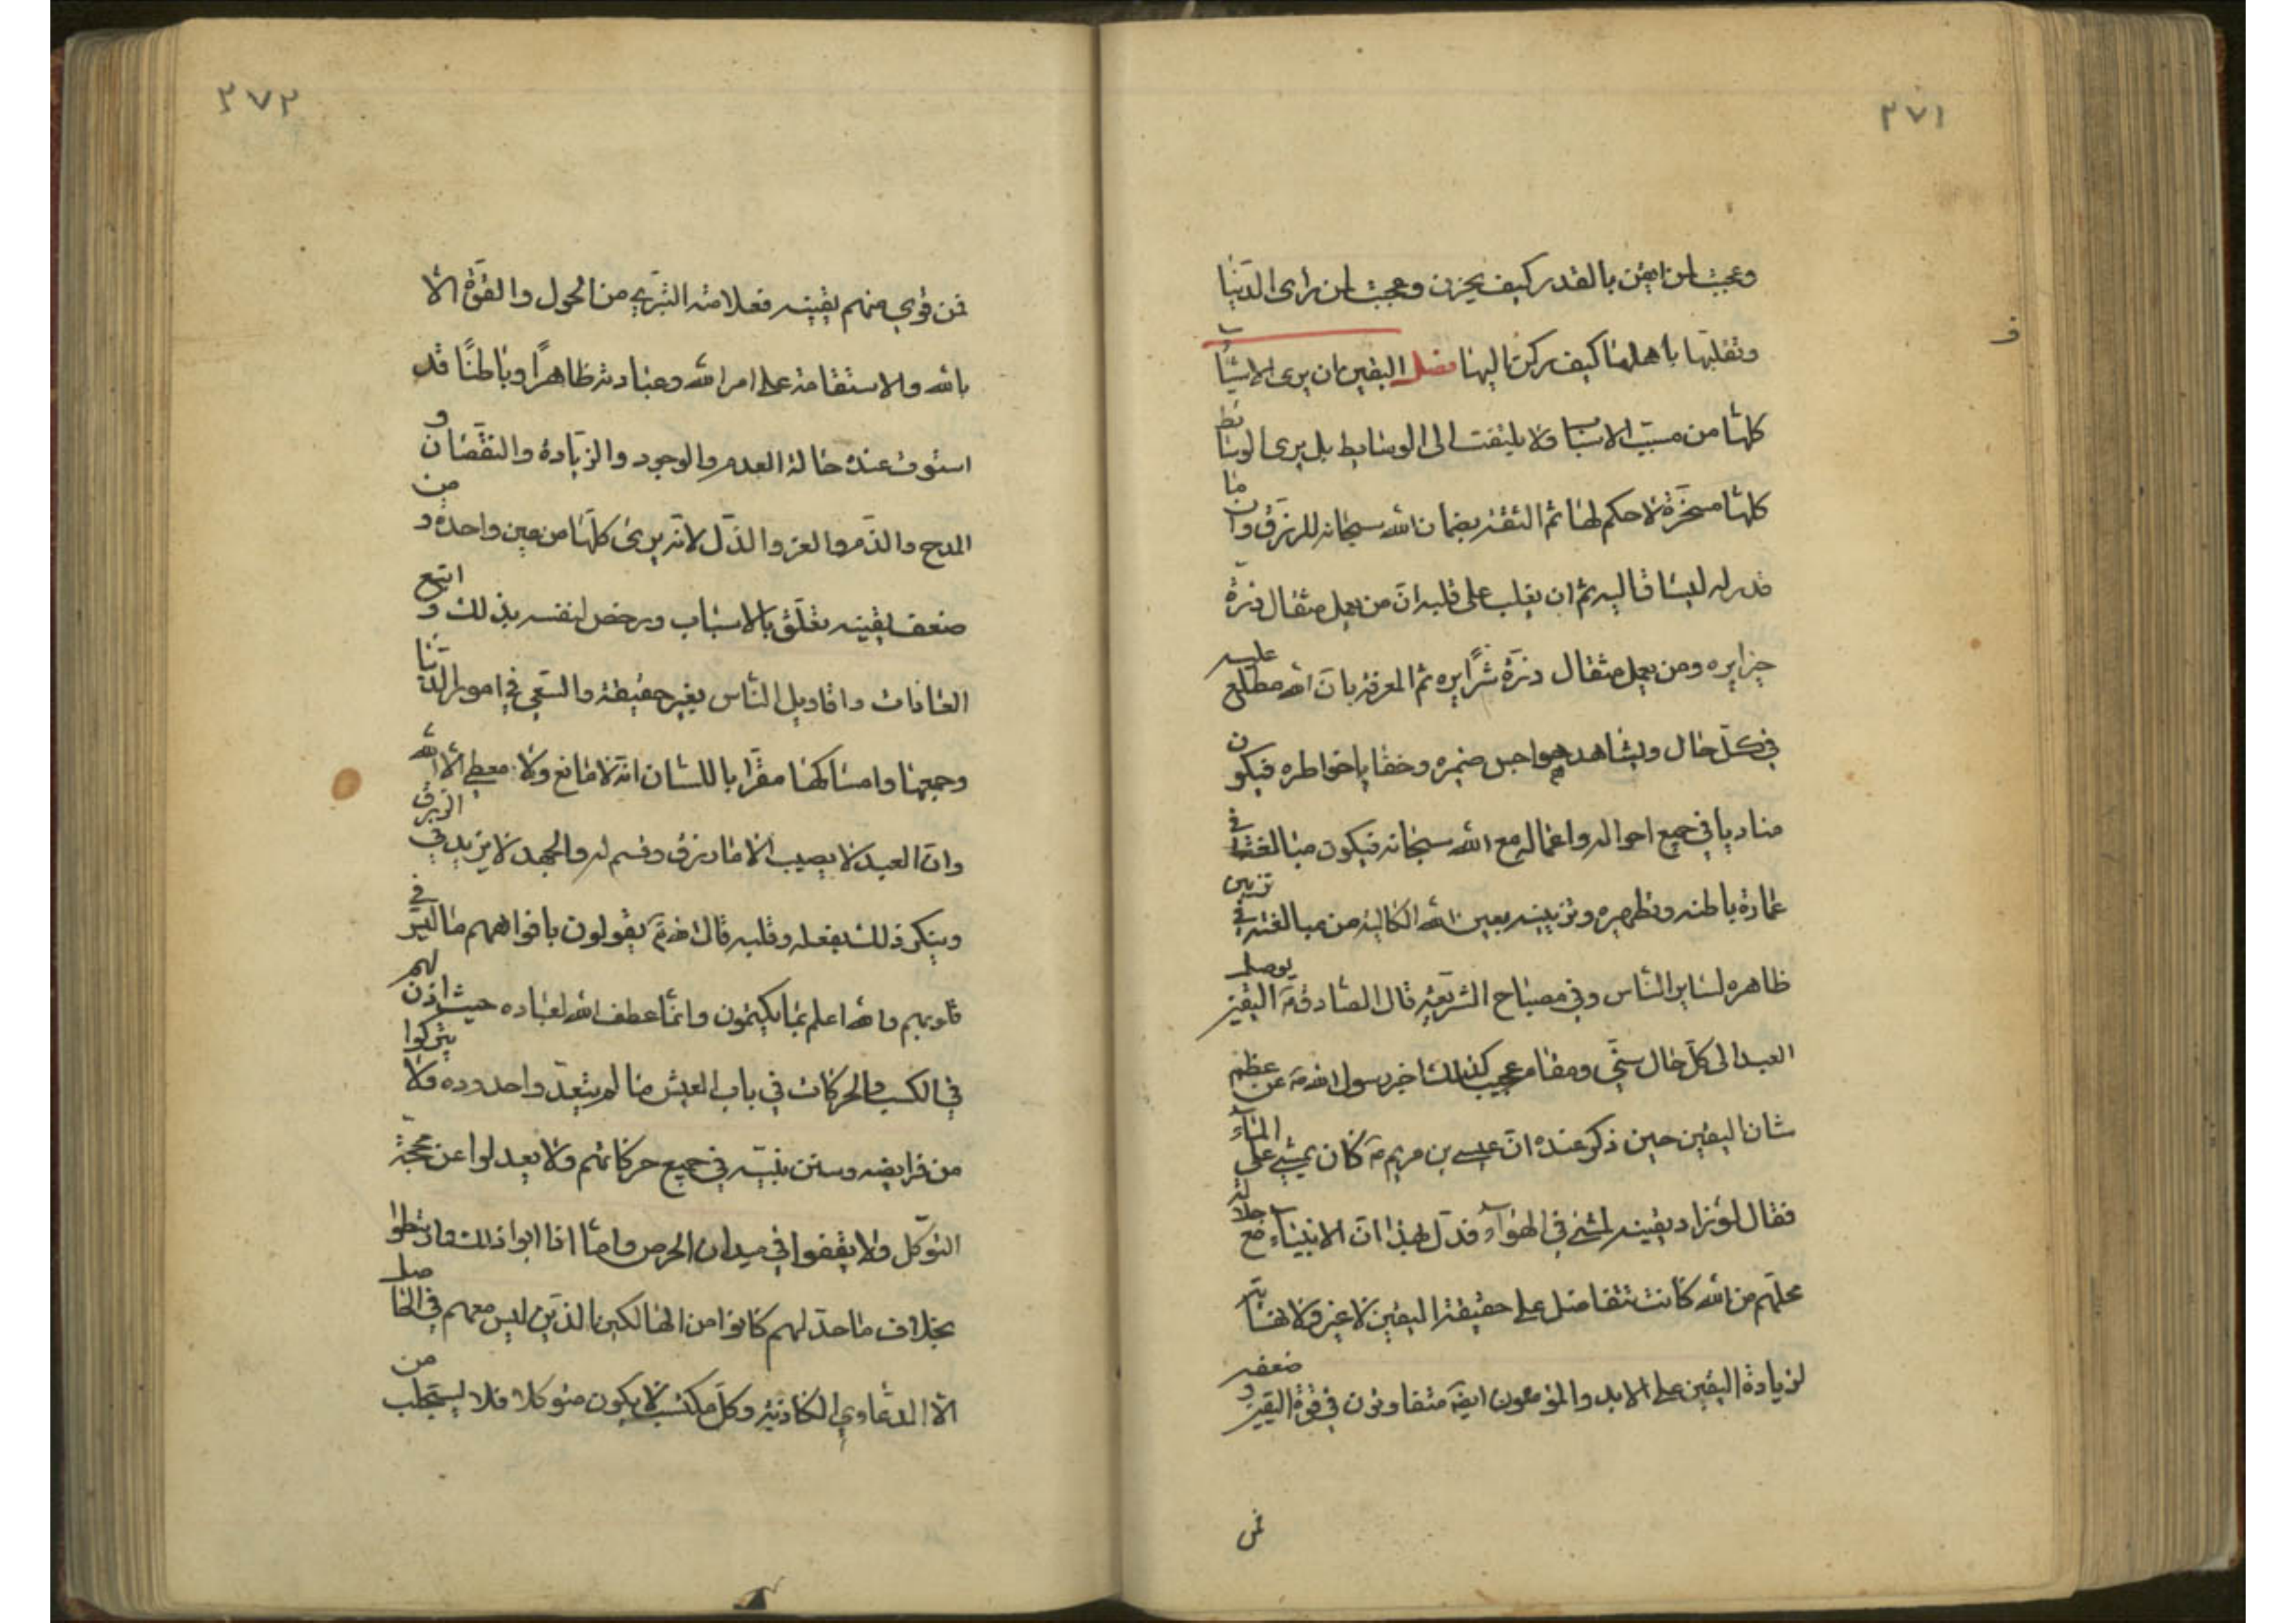 ٢٧١
وعجبت لمن ايقن بالقدر كيف يحزن وعجبت لمن راى الدنيا
وتقلبها باهلها كيف يركن اليها فصل اليقين ان يرى الاشياء
كلها من مسبب الاسباب ولا يلتفت الى الوسايط بل يرى الوسايط
كلها مسخرة لا حكم لها ثم الثقة بضمان الله سبحانه للرزق وان ما
قدر له ليساق اليه ثم ان يغلب على قلبه ان من يعمل مثقال ذرة
خيرا يره ومن يعمل مثقال ذرة شرا يره ثم المعرفة بان الله مطلع عليه
في كل حال ويشاهد هواجس ضميره وخفايا خواطره فيكون
متادبا في جميع احواله واعماله مع الله سبحانه فيكون مبالغته في
عمارة باطنه وتطهيره وتزيينه بعين الله الكالية من مبالغته في تزيين
ظاهره لساير الناس وفي مصباح الشريعة قال الصادق ع اليقين يوصل
العبد الى كل حال سني ومقام عجيب كذلك اخبر رسول الله ص عن عظم
شان اليقين حين ذكر عنده ان عيسى بن مريم ع كان يمشي على الماء
فقال لو زاد يقينه لمشى في الهواء فدل بهذا ان الانبياء مع جلالة
محلهم من الله كانت تتفاضل على حقيقة اليقين لا غير ولا نهاية
لزيادة اليقين على الابد والمؤمنون ايضا متفاوتون في قوة اليقين وضعفه
فمن
٢٧٢
فمن قوي منهم يقينه فعلامته التبري من الحول والقوة الا
بالله والاستقامة على امر الله وعبادته ظاهرا وباطنا قد
استوت عنده حالة العدم والوجود والزيادة والنقصان و
المدح والذم والعز والذل لانه يرى كلها من عين واحدة ومن
ضعف يقينه تعلق بالاسباب ورخص لنفسه بذلك واتبع
العادات واقاويل الناس بغير حقيقة والسعي في امور الدنيا
وجمعها وامساكها مقرا باللسان انه لا مانع ولا معطي الا الله
وان العبد لا يصيب الا ما رزق وقسم له والجهد لا يزيد في الرزق
وينكر ذلك بفعله وقلبه قال الله تع يقولون بافواههم ما ليس في
قلوبهم والله اعلم بما يكتمون وانما عطف الله لعباده حيث اذن لهم
في الكسب والحركات في باب العيش ما لم يتعدوا حدوده ولا يتركوا
من فرايضه وسنن نبيه في جميع حركاتهم ولا يعدلوا عن محجة
التوكل ولا يقفوا في ميدان الحرص واما اذا ابوا ذلك وارتبطوا
بخلاف ما حد لهم كانوا من الهالكين الذين ليس معهم في الحاصل
الا الدعاوي الكاذبة وكل مكتسب لا يكون متوكلا فلا يستجلب من